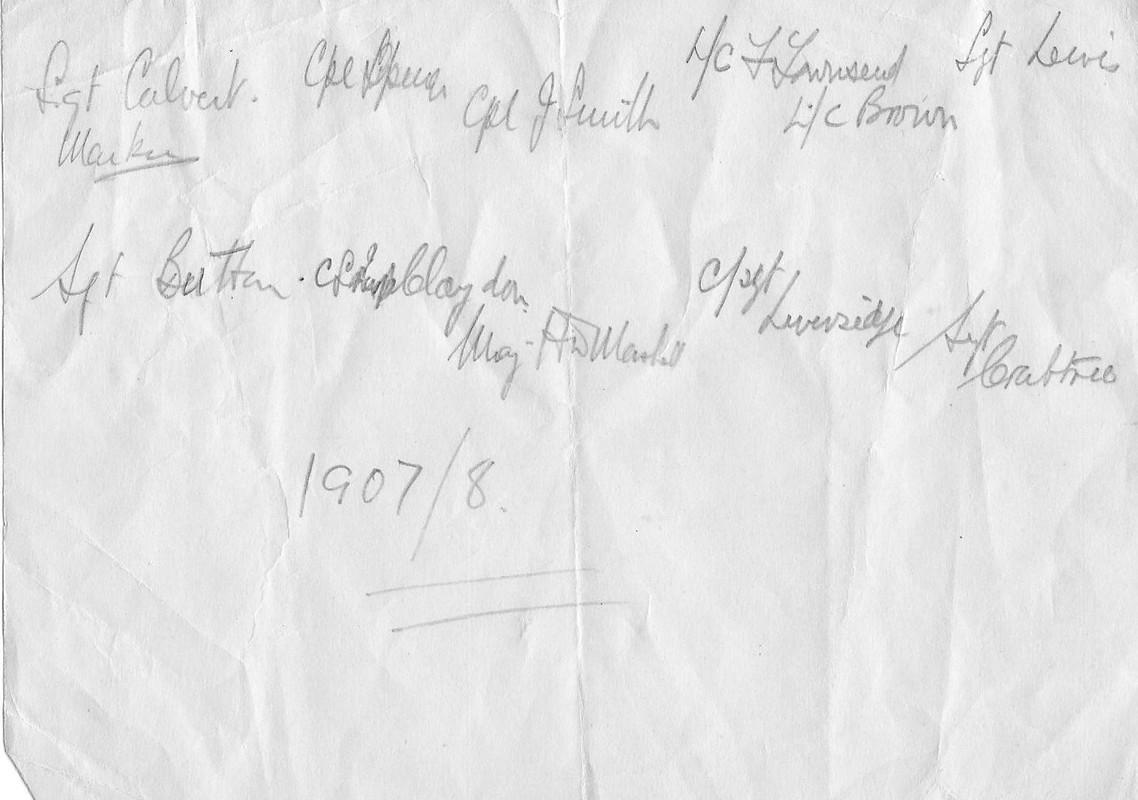 Sgt Calvert. Cpl Spencer Cpl J Smith L/C F Townsend L/C Brown Sgt Lewis
Marker
Sgt Button. Claydon C/Sgt Liversidge Sgt Crabtree
Maj. H W
1907/8.